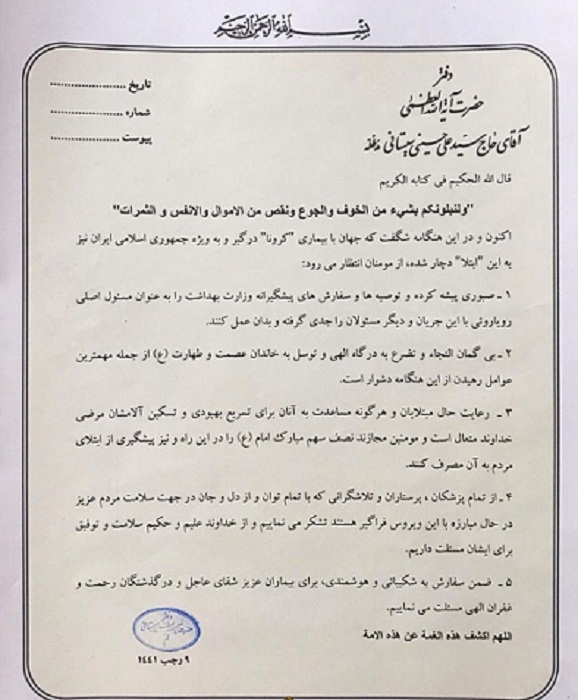 بسم الله الرحمن الرحیم
دفتر
حضرت آیة الله العظمی
آقای حاج سید علی حسینی سیستانی مدظله
تاریخ ....................
شماره ....................
پیوست ....................
قال الله الحکیم فی کتابه الکریم
"ولنبلونکم بشیء من الخوف والجوع ونقص من الاموال والانفس و الثمرات"
اکنون و در این هنگامه شگفت که جهان با بیماری "کرونا" درگیر و به ویژه جمهوری اسلامی ایران نیز
به این "ابتلا" دچار شده، از مومنان انتظار می رود:
۱ ـ صبوری پیشه کرده و توصیه ها و سفارش های پیشگیرانه وزارت بهداشت را به عنوان مسئول اصلی
رویاروئی با این جریان و دیگر مسئولان را جدی گرفته و بدان عمل کنند.
۲ ـ بی گمان التجاء و تضرع به درگاه الهی و توسل به خاندان عصمت و طهارت (ع) از جمله مهمترین
عوامل رهیدن از این هنگامه دشوار است.
۳ ـ رعایت حال مبتلایان و هرگونه مساعدت به آنان برای تسریع بهبودی و تسکین آلامشان مرضی
خداوند متعال است و مومنین مجازند نصف سهم مبارک امام (ع) را در این راه و نیز پیشگیری از ابتلای
مردم به آن مصرف کنند.
۴ ـ از تمام پزشکان ، پرستاران و تلاشگرانی که با تمام توان و از دل و جان در جهت سلامت مردم عزیز
در حال مبارزه با این ویروس فراگیر هستند تشکر می نماییم و از خداوند علیم و حکیم سلامت و توفیق
برای ایشان مسئلت داریم.
۵ ـ ضمن سفارش به شکیبائی و هوشمندی، برای بیماران عزیز شفای عاجل و درگذشتگان رحمت و
غفران الهی مسئلت می نماییم.
اللهم اکشف هذه الغمة عن هذه الامة
۹ رجب ۱۴۴۱